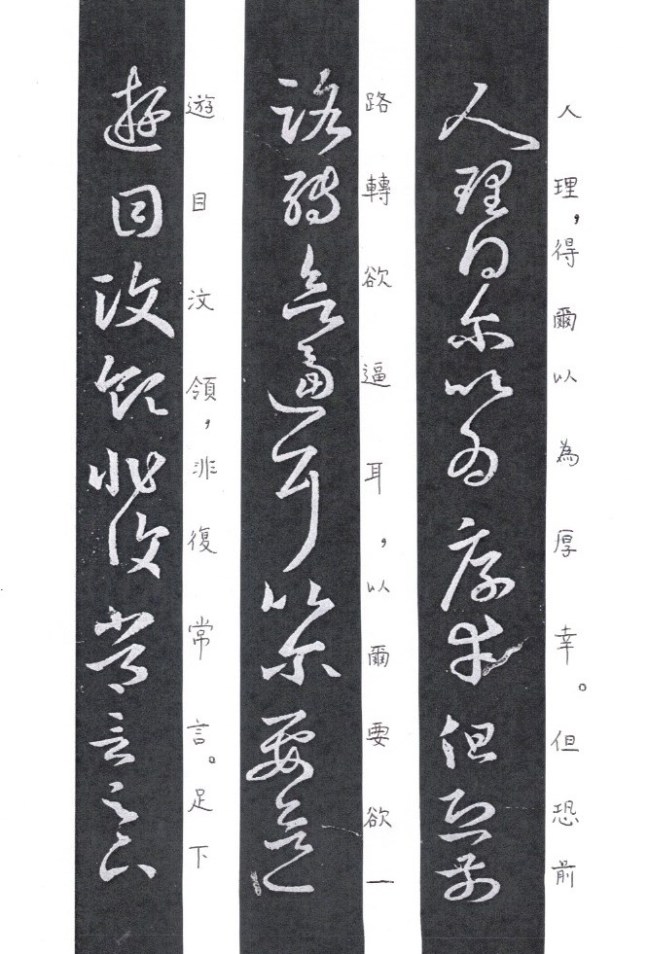 人理,得爾以為厚幸。但恐前
人理得爾以為厚幸但恐前
路轉欲逼耳,以爾要欲一
路轉欲逼耳以爾要欲一
遊目汶領,非復常言。足下
遊目汶領非復常言足下